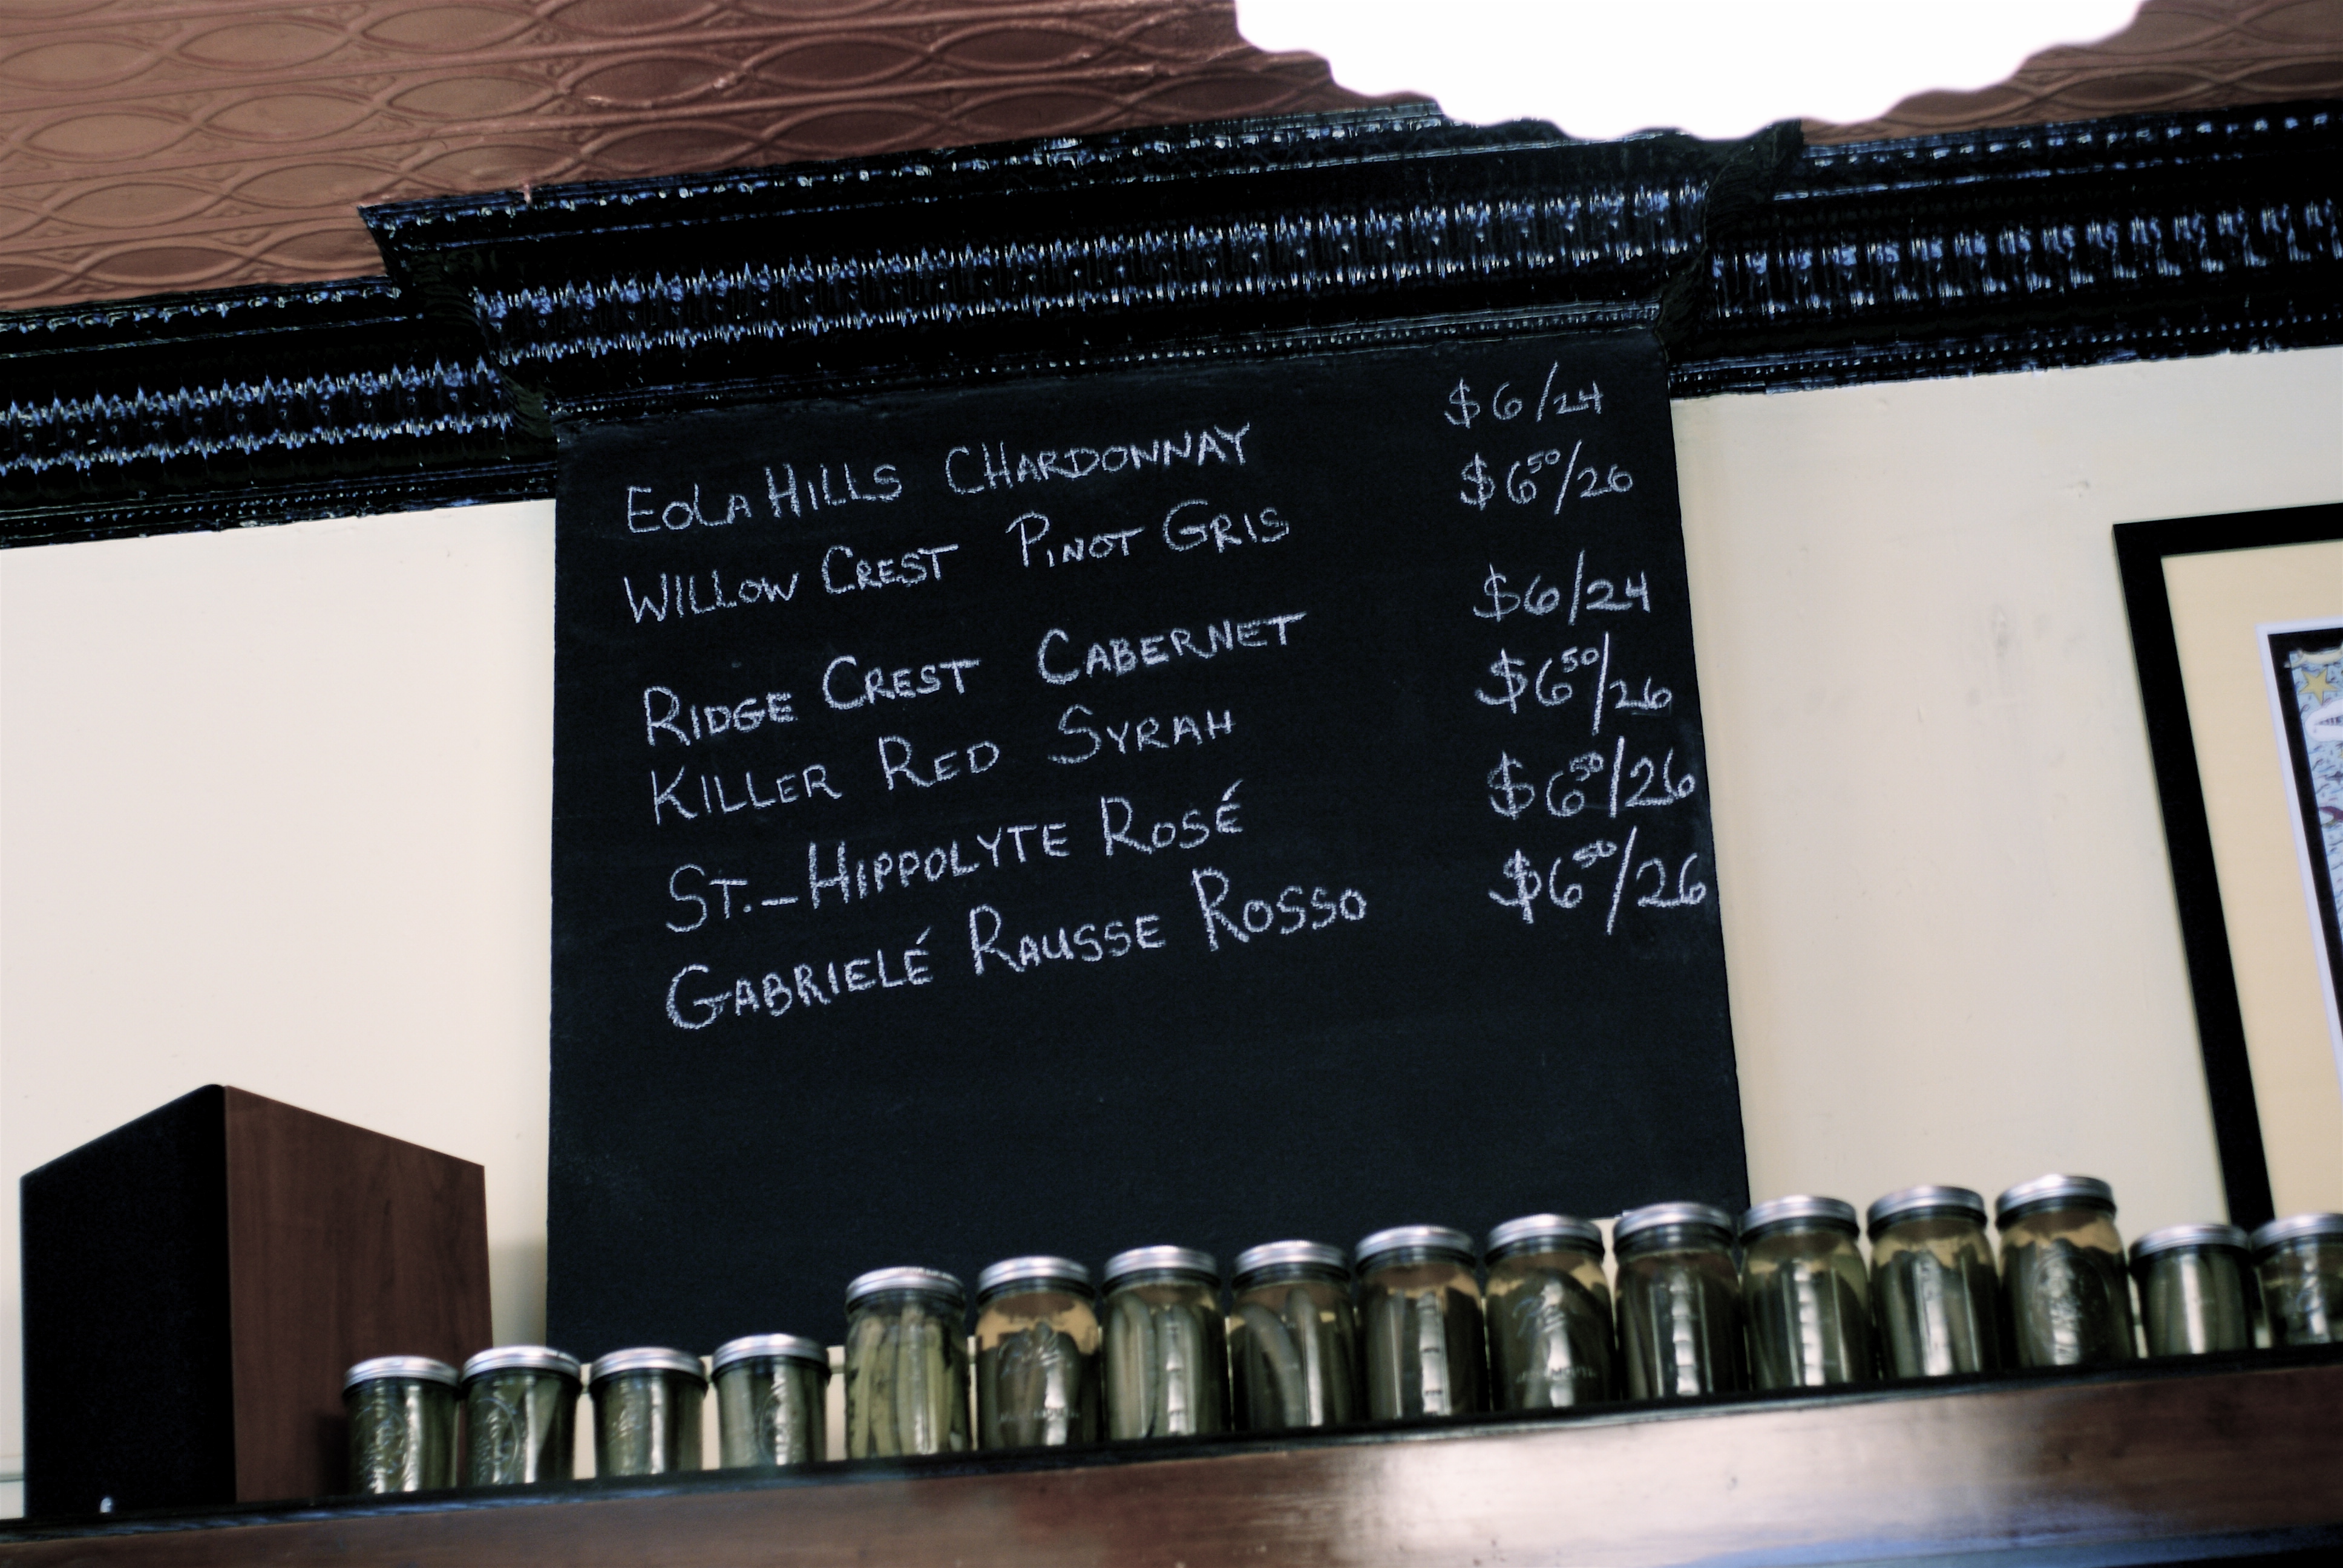 EOLA HILLS CHARDONNAY $6/24
WILLOW CREST PINOT GRIS $6⁵⁰/26
RIDGE CREST CABERNET $6/24
KILLER RED SYRAH $6⁵⁰/26
ST.-HIPPOLYTE ROSÉ $6⁵⁰/26
GABRIELÉ RAUSSE ROSSO $6⁵⁰/26